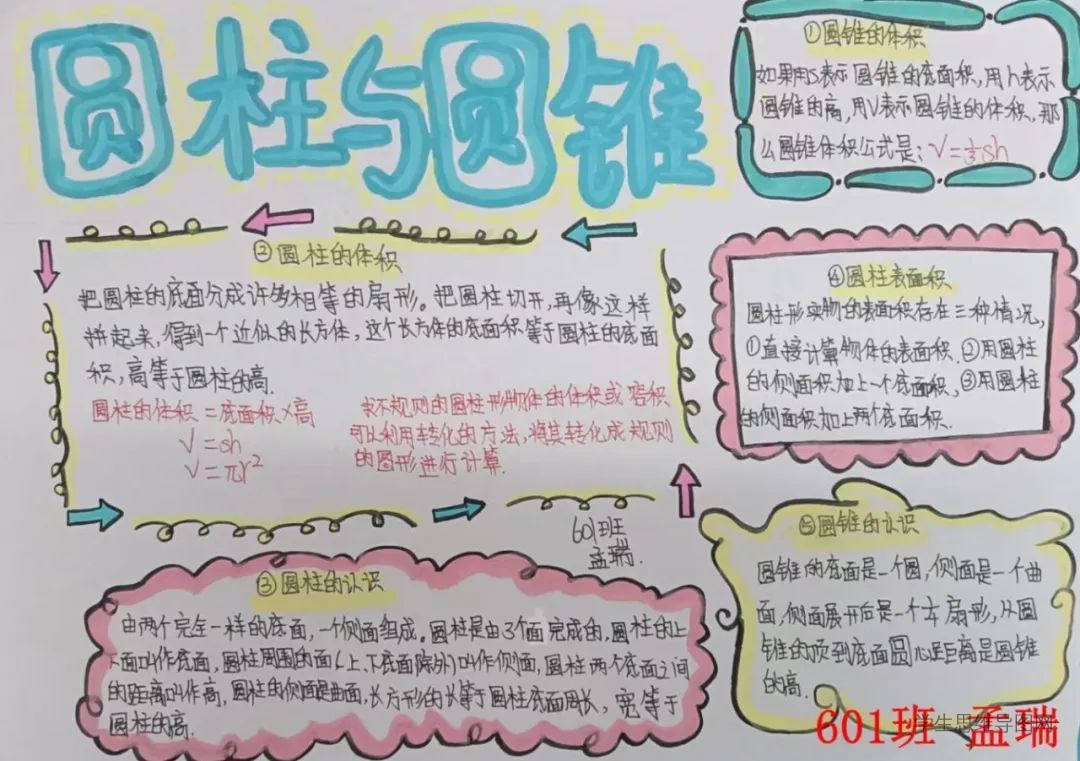 圆柱与圆锥
①圆锥的体积
如果用S表示圆锥的底面积,用h表示
圆锥的高,用V表示圆锥的体积,那
么圆锥体积公式是:V=⅓sh
②圆柱的体积
把圆柱的底面分成许多相等的扇形。把圆柱切开,再像这样
拼起来,得到一个近似的长方体,这个长方体的底面积等于圆柱的底面
积,高等于圆柱的高.
圆柱的体积=底面积×高
V=sh
V=πr²
求不规则的圆柱形物体的体积或容积
可以利用转化的方法,将其转化成规则
的图形进行计算.
④圆柱表面积
圆柱形实物的表面积存在三种情况,
①直接计算物体的表面积.②用圆柱
的侧面积加上一个底面积,③用圆柱
的侧面积加上两个底面积.
601班
孟瑞.
③圆柱的认识
由两个完全一样的底面,一个侧面组成。圆柱是由3个面完成的,圆柱的上
下面叫作底面,圆柱周围的面(上、下底面除外)叫作侧面,圆柱两个底面之间
的距离叫作高,圆柱的侧面是曲面,长方形的长等于圆柱底面周长,宽等于
圆柱的高.
⑤圆锥的认识
圆锥的底面是一个圆,侧面是一个曲
面,侧面展开后是一个扇形,从圆
锥的顶到底面圆心距离是圆锥
的高.
601班 孟瑞
学生思维导图网